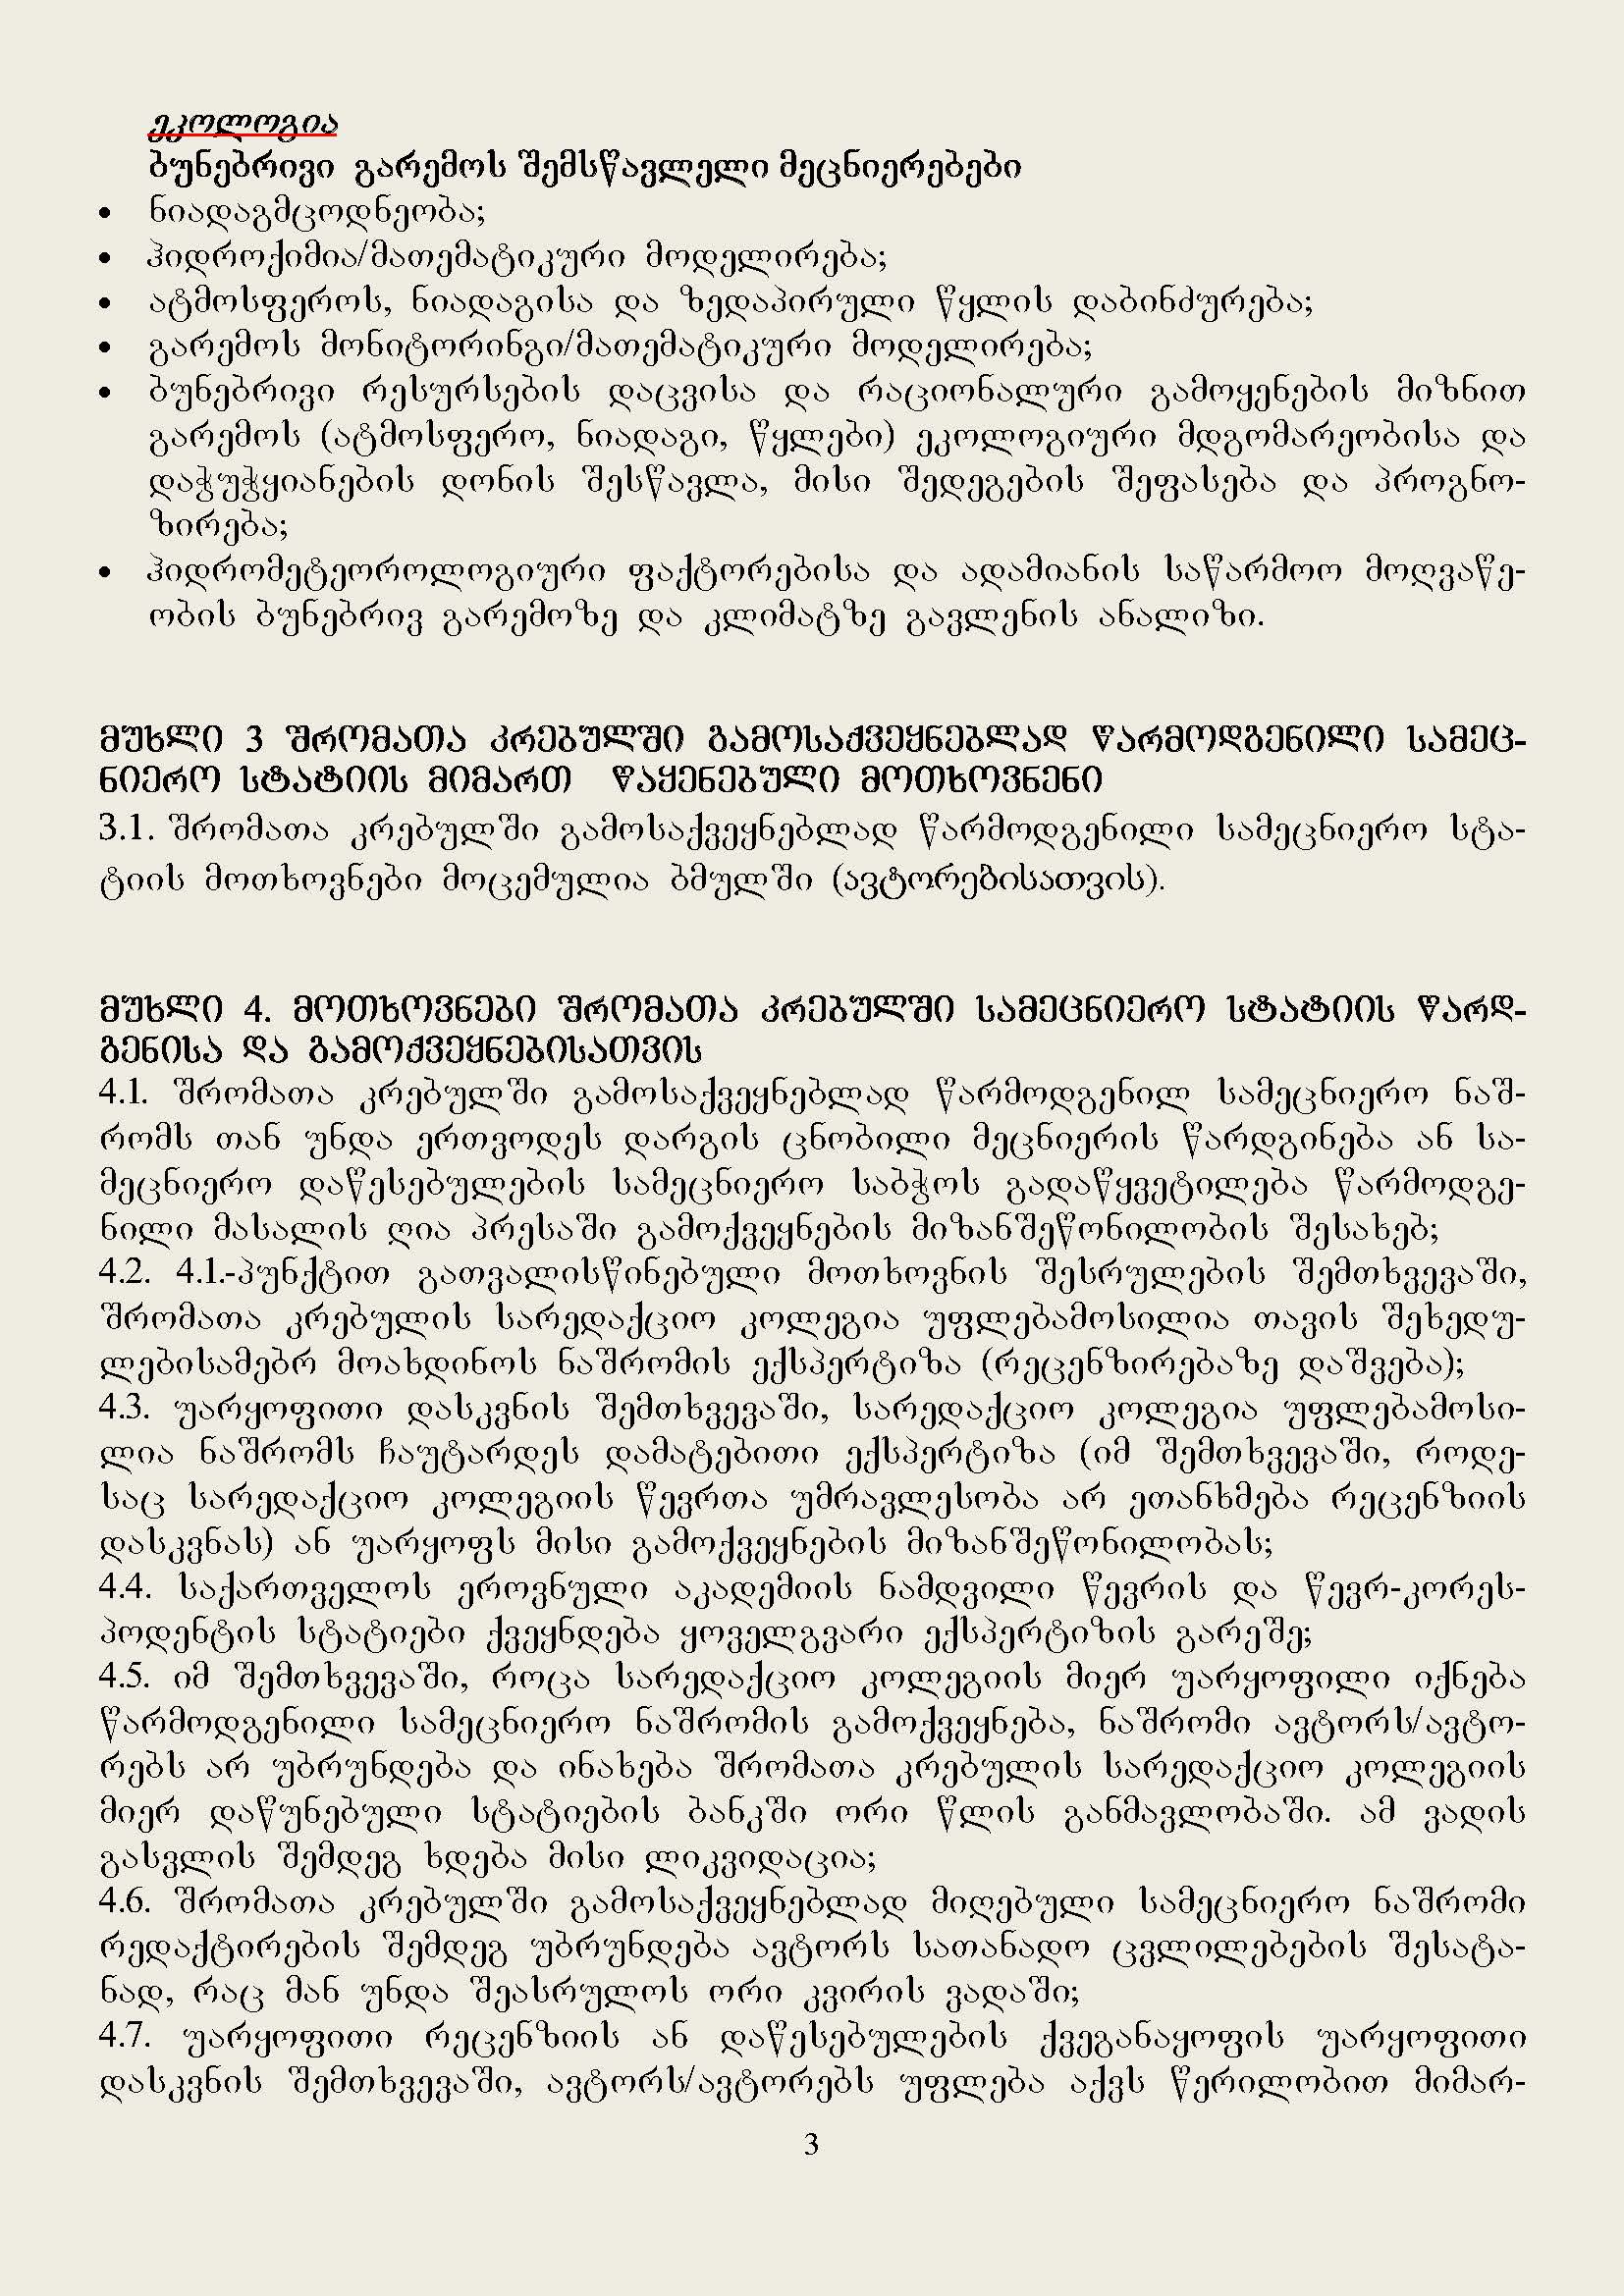 ეკოლოგია
ბუნებრივი გარემოს შემსწავლელი მეცნიერებები
• ნიადაგმცოდნეობა;
• ჰიდროქიმია/მათემატიკური მოდელირება;
• ატმოსფეროს, ნიადაგისა და ზედაპირული წყლის დაბინძურება;
• გარემოს მონიტორინგი/მათემატიკური მოდელირება;
• ბუნებრივი რესურსების დაცვისა და რაციონალური გამოყენების მიზნით
გარემოს (ატმოსფერო, ნიადაგი, წყლები) ეკოლოგიური მდგომარეობისა და
დაჭუჭყიანების დონის შესწავლა, მისი შედეგების შეფასება და პროგნო-
ზირება;
• ჰიდრომეტეოროლოგიური ფაქტორებისა და ადამიანის საწარმოო მოღვაწე-
ობის ბუნებრივ გარემოზე და კლიმატზე გავლენის ანალიზი.
მუხლი 3 შრომათა კრებულში გამოსაქვეყნებლად წარმოდგენილი სამეც-
ნიერო სტატიის მიმართ წაყენებული მოთხოვნენი
3.1. შრომათა კრებულში გამოსაქვეყნებლად წარმოდგენილი სამეცნიერო სტა-
ტიის მოთხოვნები მოცემულია ბმულში (ავტორებისათვის).
მუხლი 4. მოთხოვნები შრომათა კრებულში სამეცნიერო სტატიის წარდ-
გენისა და გამოქვეყნებისათვის
4.1. შრომათა კრებულში გამოსაქვეყნებლად წარმოდგენილ სამეცნიერო ნაშ-
რომს თან უნდა ერთვოდეს დარგის ცნობილი მეცნიერის წარდგინება ან სა-
მეცნიერო დაწესებულების სამეცნიერო საბჭოს გადაწყვეტილება წარმოდგე-
ნილი მასალის ღია პრესაში გამოქვეყნების მიზანშეწონილობის შესახებ;
4.2. 4.1.-პუნქტით გათვალისწინებული მოთხოვნის შესრულების შემთხვევაში,
შრომათა კრებულის სარედაქციო კოლეგია უფლებამოსილია თავის შეხედუ-
ლებისამებრ მოახდინოს ნაშრომის ექსპერტიზა (რეცენზირებაზე დაშვება);
4.3. უარყოფითი დასკვნის შემთხვევაში, სარედაქციო კოლეგია უფლებამოსი-
ლია ნაშრომს ჩაუტარდეს დამატებითი ექსპერტიზა (იმ შემთხვევაში, როდე-
საც სარედაქციო კოლეგიის წევრთა უმრავლესობა არ ეთანხმება რეცენზიის
დასკვნას) ან უარყოფს მისი გამოქვეყნების მიზანშეწონილობას;
4.4. საქართველოს ეროვნული აკადემიის ნამდვილი წევრის და წევრ-კორეს-
პოდენტის სტატიები ქვეყნდება ყოველგვარი ექსპერტიზის გარეშე;
4.5. იმ შემთხვევაში, როცა სარედაქციო კოლეგიის მიერ უარყოფილი იქნება
წარმოდგენილი სამეცნიერო ნაშრომის გამოქვეყნება, ნაშრომი ავტორს/ავტო-
რებს არ უბრუნდება და ინახება შრომათა კრებულის სარედაქციო კოლეგიის
მიერ დაწუნებული სტატიების ბანკში ორი წლის განმავლობაში. ამ ვადის
გასვლის შემდეგ ხდება მისი ლიკვიდაცია;
4.6. შრომათა კრებულში გამოსაქვეყნებლად მიღებული სამეცნიერო ნაშრომი
რედაქტირების შემდეგ უბრუნდება ავტორს სათანადო ცვლილებების შესატა-
ნად, რაც მან უნდა შეასრულოს ორი კვირის ვადაში;
4.7. უარყოფითი რეცენზიის ან დაწესებულების ქვეგანაყოფის უარყოფითი
დასკვნის შემთხვევაში, ავტორს/ავტორებს უფლება აქვს წერილობით მიმარ-
3